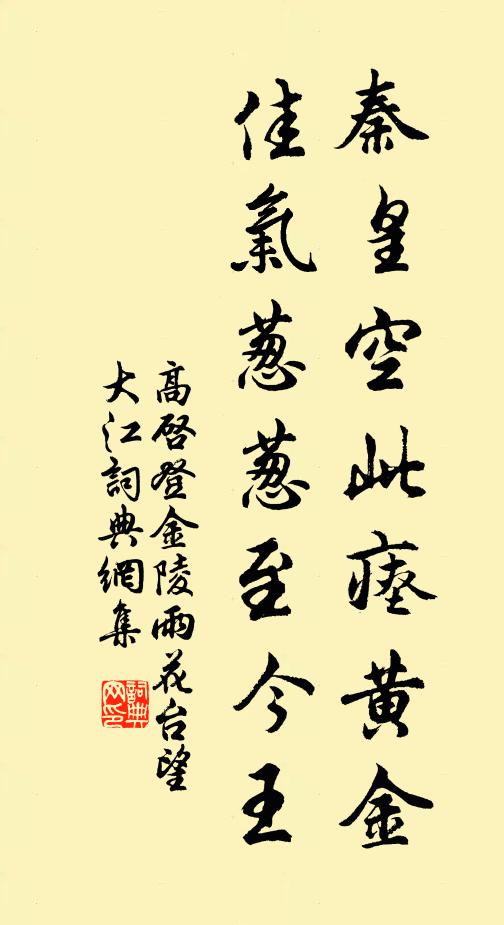 秦皇空此瘞黄金
佳氣葱葱至今王
高啓登金陵雨花台望
大江詞典網集
詞典网印